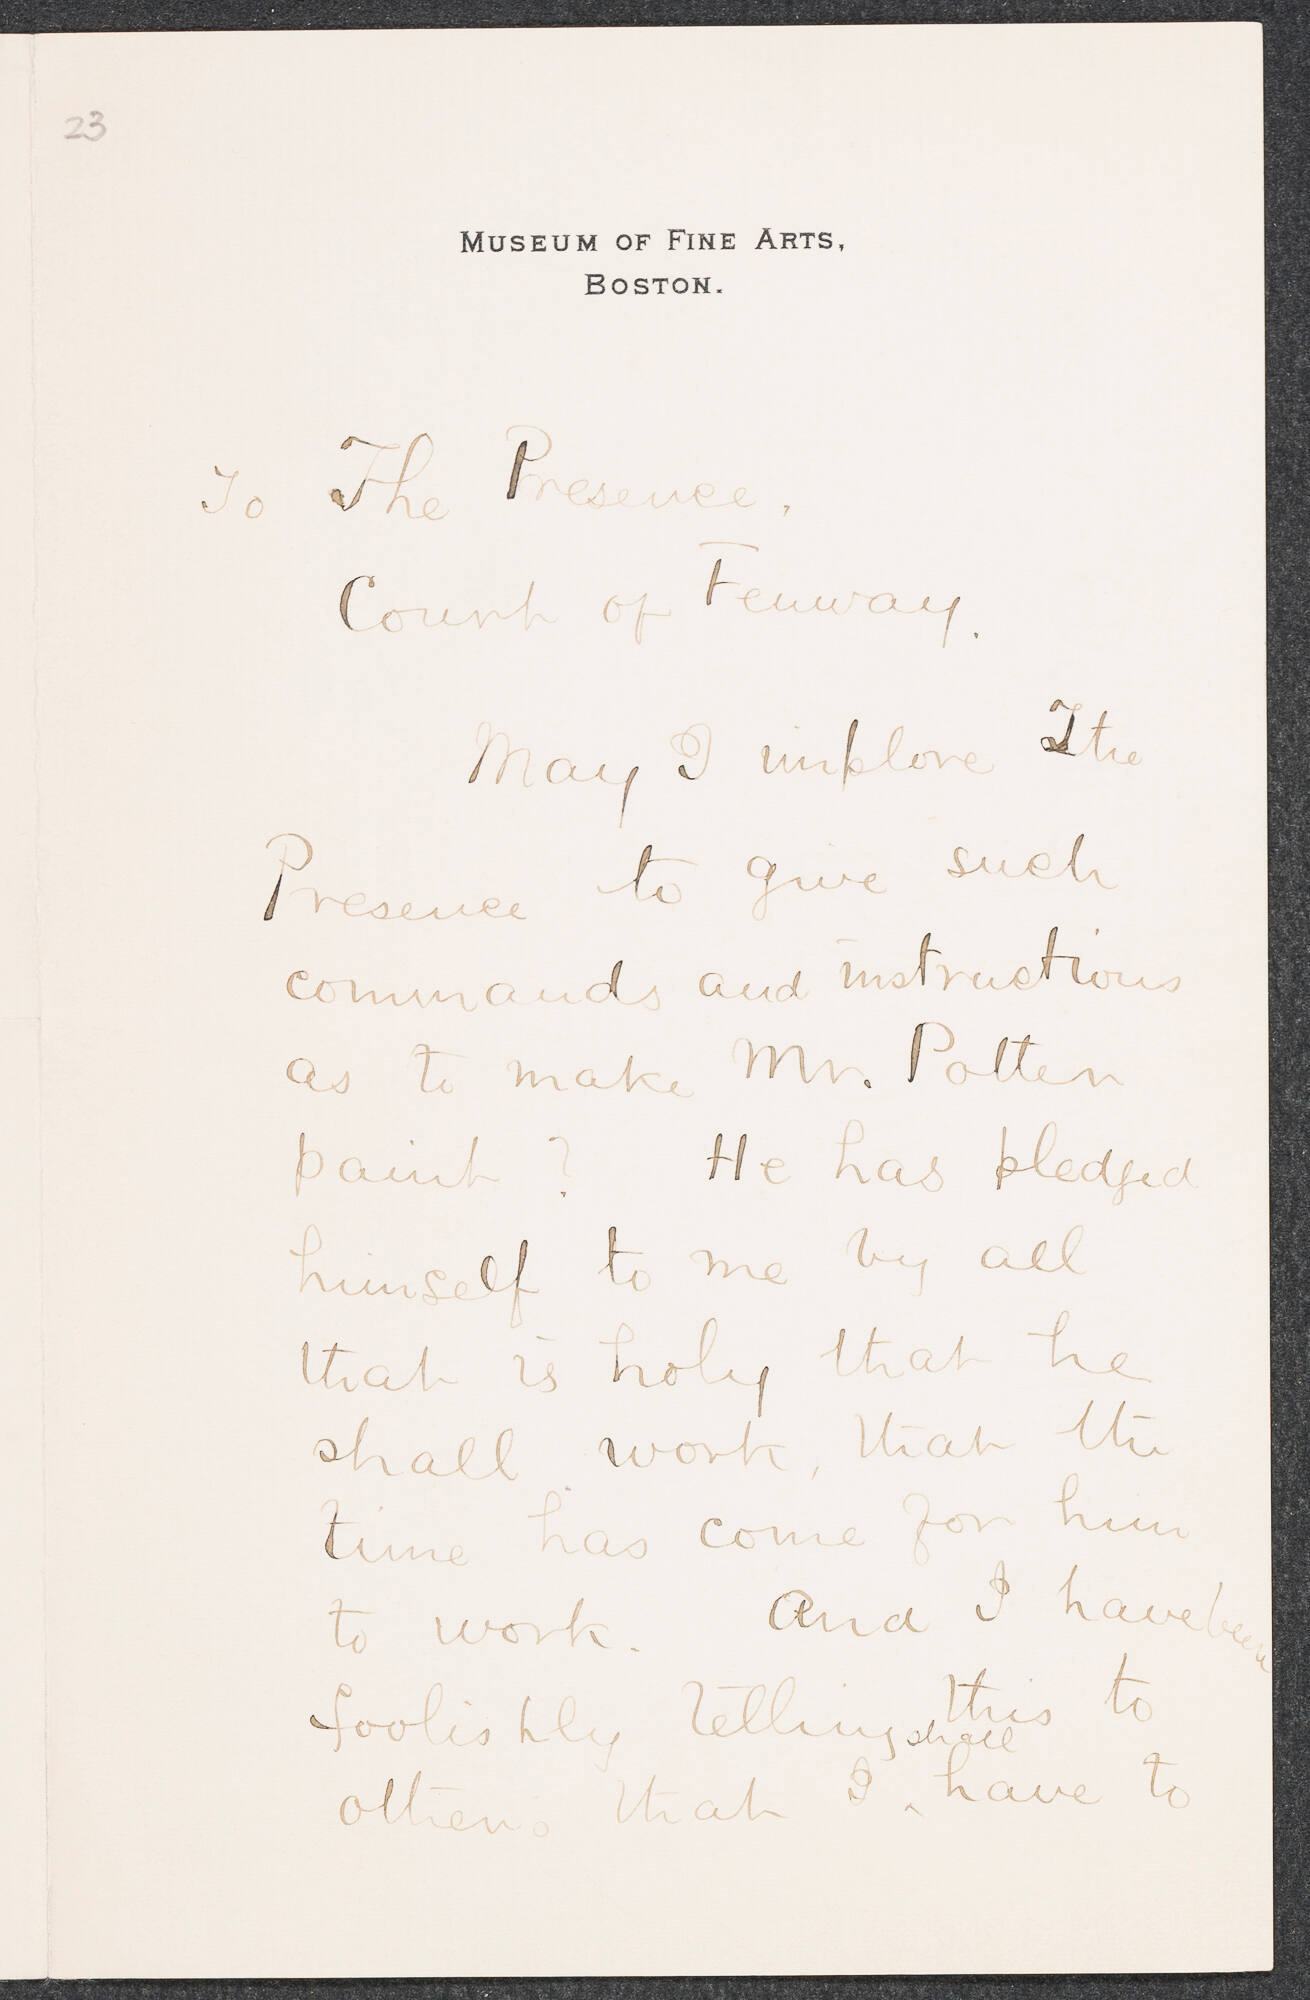 23
MUSEUM OF FINE ARTS,
BOSTON.
To The Presence,
Court of Fenway.
May I implore The
Presence to give such
commands and instructions
as to make Mr. Potter
paint? He has pledged
himself to me by all
that is holy that he
shall work, that the
time has come for him
to work. And I have been
foolishly telling this to
shall
others that I ‸ have to